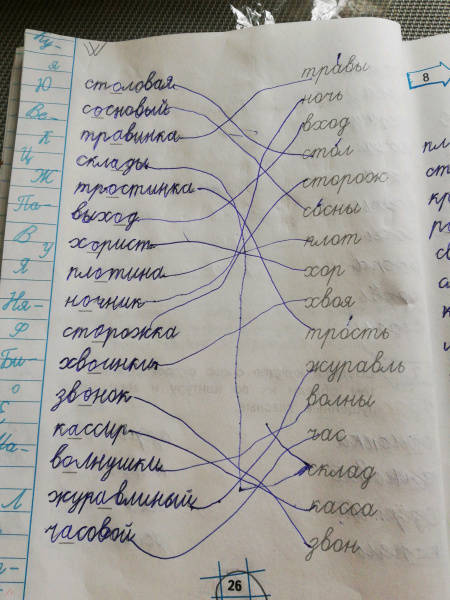 Ку-
я
Ю
Во-
К
Ц
Ж
Па-
В
У
Я
Ня-
Ф
Би-
о
Л
столовая
сосновый
травинка
склады
тростинка
выход
хорист
плотина
ночник
сторожка
хвоинки
звонок
кассир
волнушки
журавлиный
часовой
травы
ночь
вход
стол
сторож
сосны
плот
хор
хвоя
трость
журавль
волны
час
склад
касса
звон
8
26